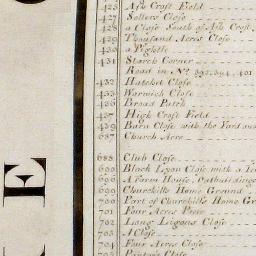 425 Ash Croft Field
427 Sollers Close
428 a Close South of Ash Croft
429 Thousand Acres Close
430 a Pightle
431 Starch Corner
Road in Nº 393, 394, 401
432 Hatchit Close
433 Warwick Close
436 Broad Patch
437 High Croft Field
439 Barn Close with the Yard and
687 Church Acre
688 Club Close
690 Black Lyon Close with a
696 a Farm House, Outbuildings
699 Churchills Home Ground
700 Part of Churchills Home
701 Four Acres Piece
702 Long Ligons Close
703 A Close
704 Four Acres Close
Close
E